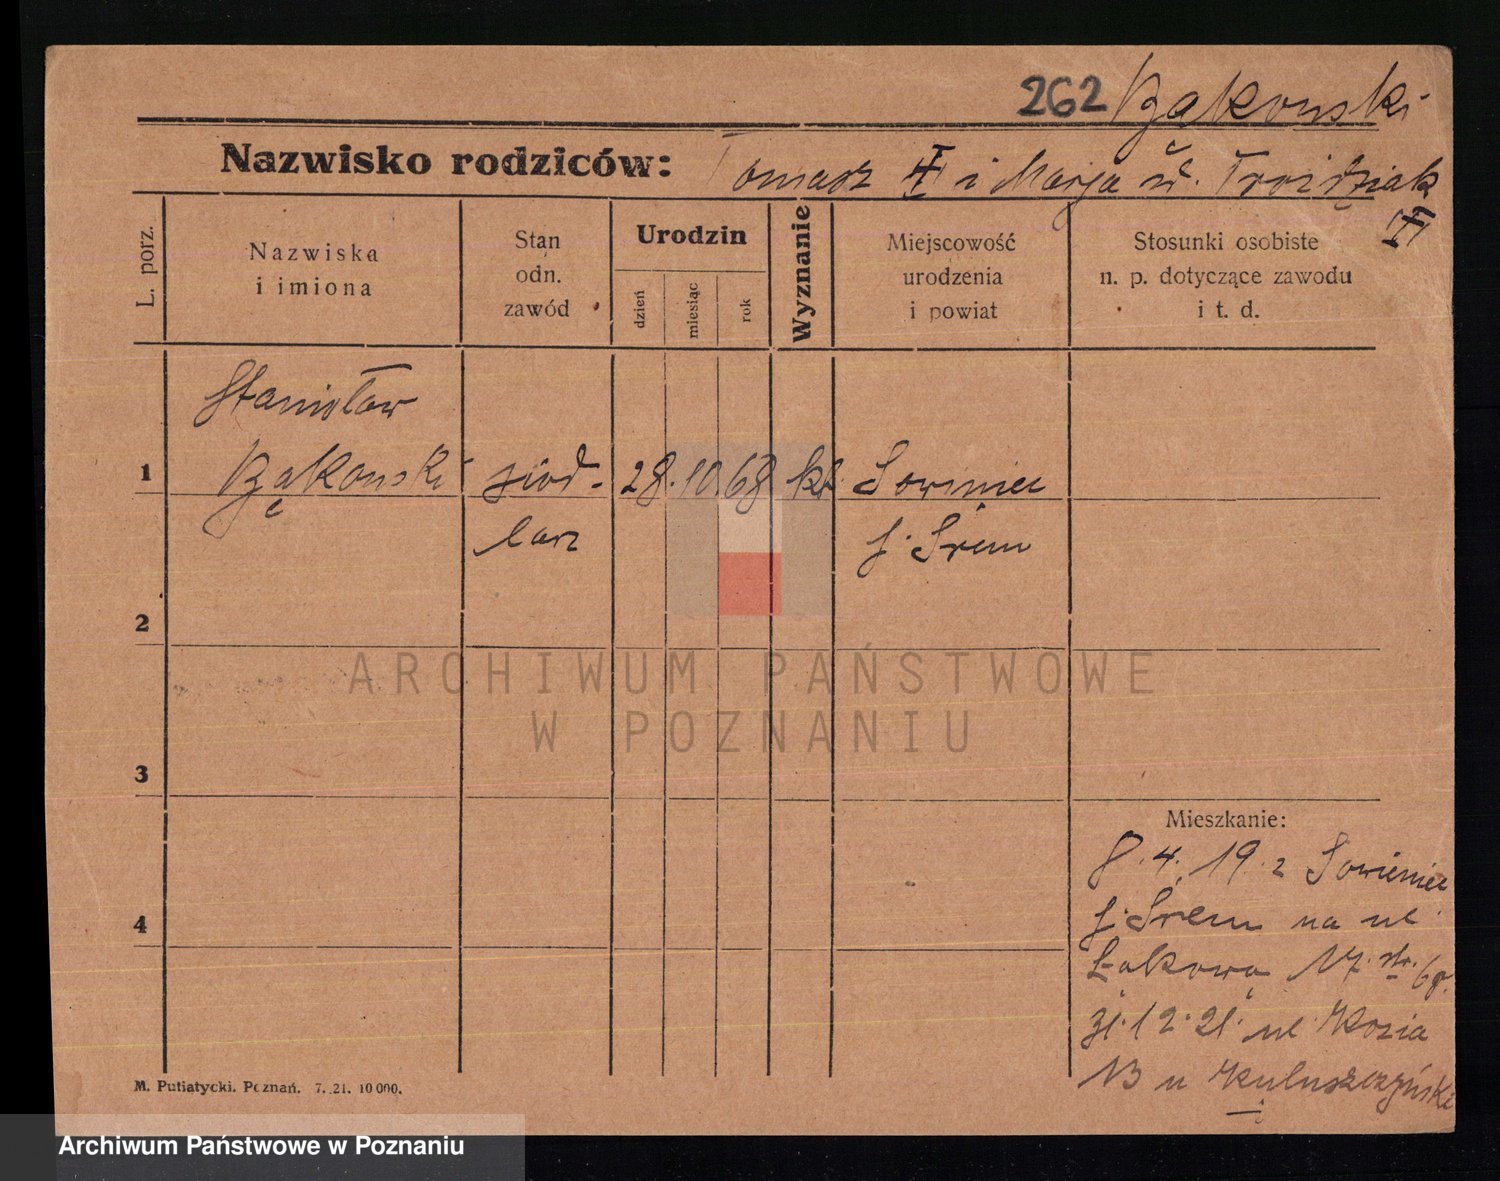 262 Bąkowski
Nazwisko rodziców: Tomasz i Marja
L. porz.
Nazwiska
i imiona
Stan
odn.
zawód
Urodzin
dzień
miesiąc
rok
Wyznanie
Miejscowość
urodzenia
i powiat
Stosunki osobiste
n. p. dotyczące zawodu
i t. d.
Stanisław
1 Bąkowski siod- 28. 10. 68 kt. Sowiniec
larz
f. Śrem
2
3
4
Mieszkanie:
8. 4. 19. z Sowiniec
f. Śrem na ul.
Łąkową 17. str.
31. 12. 21. ul Kozia
13 u
ARCHIWUM PAŃSTWOWE
W POZNANIU
M. Putiatycki. Poznań. 7. 21. 10 000.
Archiwum Państwowe w Poznaniu